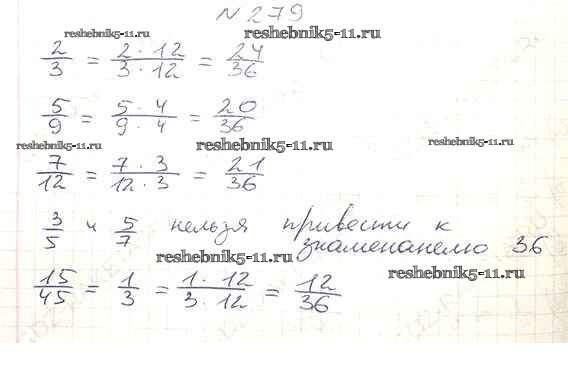 № 279
reshebnik5-11.ru
reshebnik5-11.ru
2/3 = 2 · 12/3 · 12 = 24/36
5/9 = 5 · 4/9 · 4 = 20/36
reshebnik5-11.ru
reshebnik5-11.ru
reshebnik5-11.ru
7/12 = 7 · 3/12 · 3 = 21/36
3/5 и 5/7 нельзя привести к
знаменателю 36
reshebnik5-11.ru
reshebnik5-11.ru
15/45 = 1/3 = 1 · 12/3 · 12 = 12/36